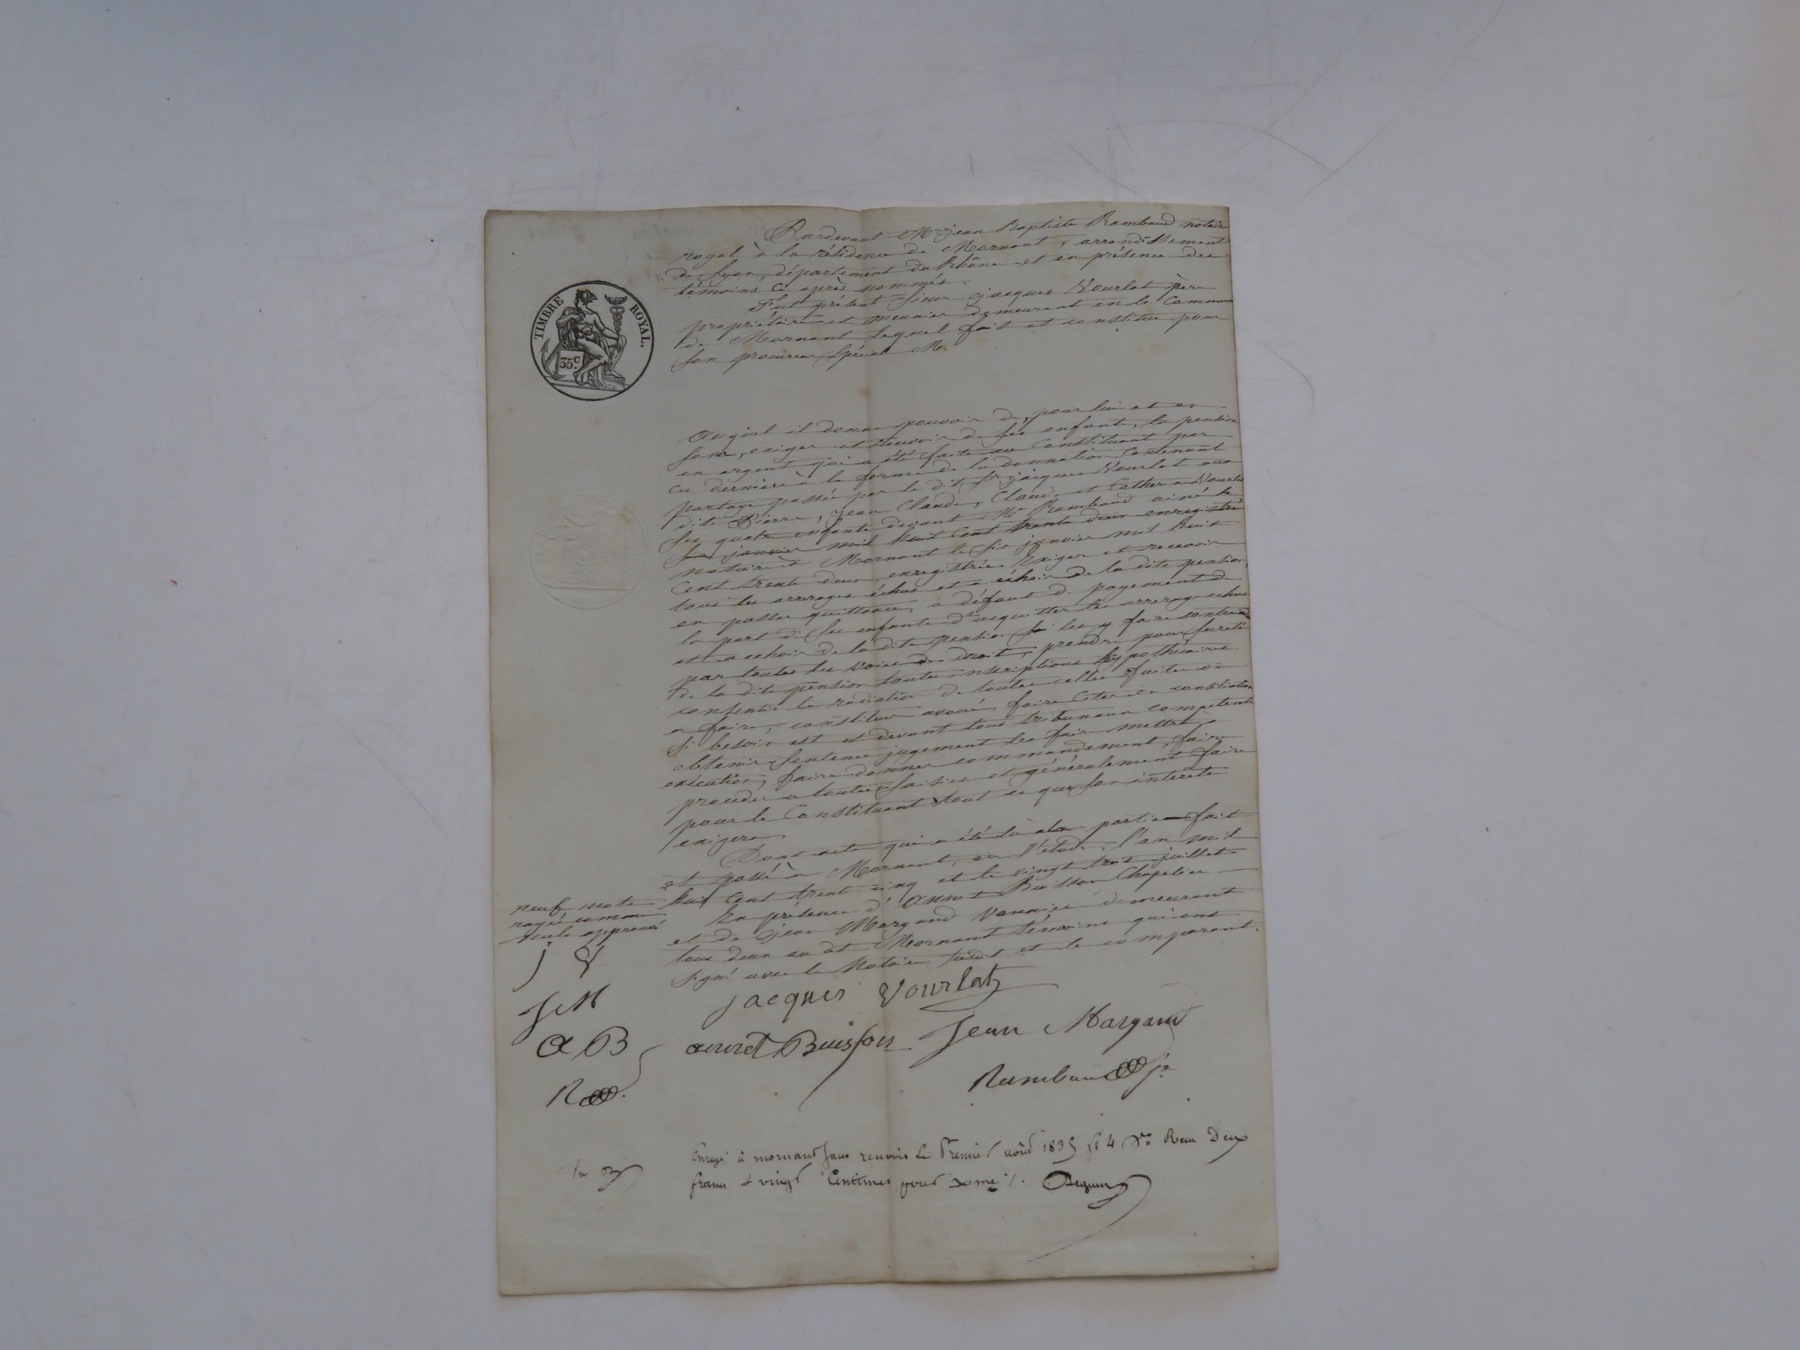 TIMBRE ROYAL.
35c.
Pardevant Me Jean Baptiste Rambaud notaire
royal à la résidence de Mornant, arrondissement
de Lyon, département du Rhône et en présence des
témoins ci après nommés.
Fut présent Sieur Jacques Vourlat père
propriétaire et meunier demeurant en la Commune
de Mornant lequel fait et constitue pour
son procureur spécial M.
Auquel il donne pouvoir de, pour lui et en
son, exiger et recevoir de ses enfants, la pension
en argent qui a été faite au Constituant par
ces derniers à la forme de la donnation contenant
partage passée par le dit Sr Jacques Vourlat aux
dits Pierre, Jean Claude, Claude et Catherine Vourlat
ses quatre enfants devant Me Rambaud ainé le
six janvier mil huit Cent trente deux enregistré
notaire à Mornant le six janvier mil huit
Cent trente deux, enregistrée. Exiger et recevoir
tous les arrerages échus et a échoir de la dite pension,
en passer quittance, a défaut de payement de
la part de ses enfants d'acquitter les arrerages échus
et a echoir de la dite pension les y faire contraindre
par toutes les voies de droit, prendre pour sureté
de la dite pension toute inscriptions hypothécaire
consentir la radiation de toutes celles faites ou
a faire, constituer avoué, faire citer en conciliation
si besoin est et devant tous tribunaux competents
obtenir sentence jugement les faire mettre a
exécution, faire donner commandement, faire
proceder a toutes saisies et généralement faire
pour le Constituant tout ce que son interet
exigera.
Dont acte qui a été lu a la partie fait
et passé à Mornant, en l'étude, l'an mil
huit Cent trente cinq et le vingt trois juillet
En présence d'Annet Buisson Chapelier
et de Jean Margand Vannier demeurant
tous deux au dt Mornant témoins qui ont
signé avec le Notaire susdit et le comparant.
neuf mots
rayé comme
nuls approuvé
J V
JM
AB
R
jacques Vourlat
annet Buisson
Jean Margand
Rambaud Je
Enregé à mornant sans renvois le Premier août 1835 fo 4 Vo Reçu Deux
francs & vingt Centimes pour Dxme.